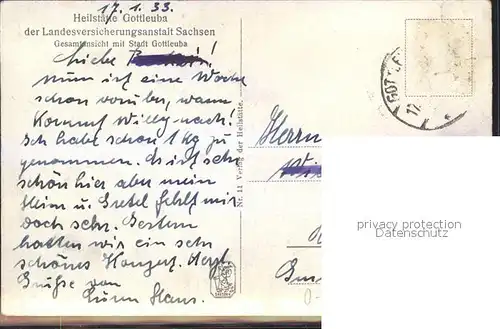 17.1.33.
Heilstätte Gottleuba
der Landesversicherungsanstalt Sachsen
Gesamtansicht mit Stadt Gottleuba
Liebe
Nun ist eine Woche
schon vorüber, wann
kommt Willy nach!
Ich habe schon 1 kg zu
genommen. Es ist sehr
schön hier aber mein
Heim u. Gretel fehlt mir
doch sehr. Gestern
hatten wir ein sehr
schönes Konzert. Herzl.
Grüße von
Eurem Hans.
Nr. 11 Verlag der Heilstätte.
Herrn
GOT
privacy protection
Datenschutz